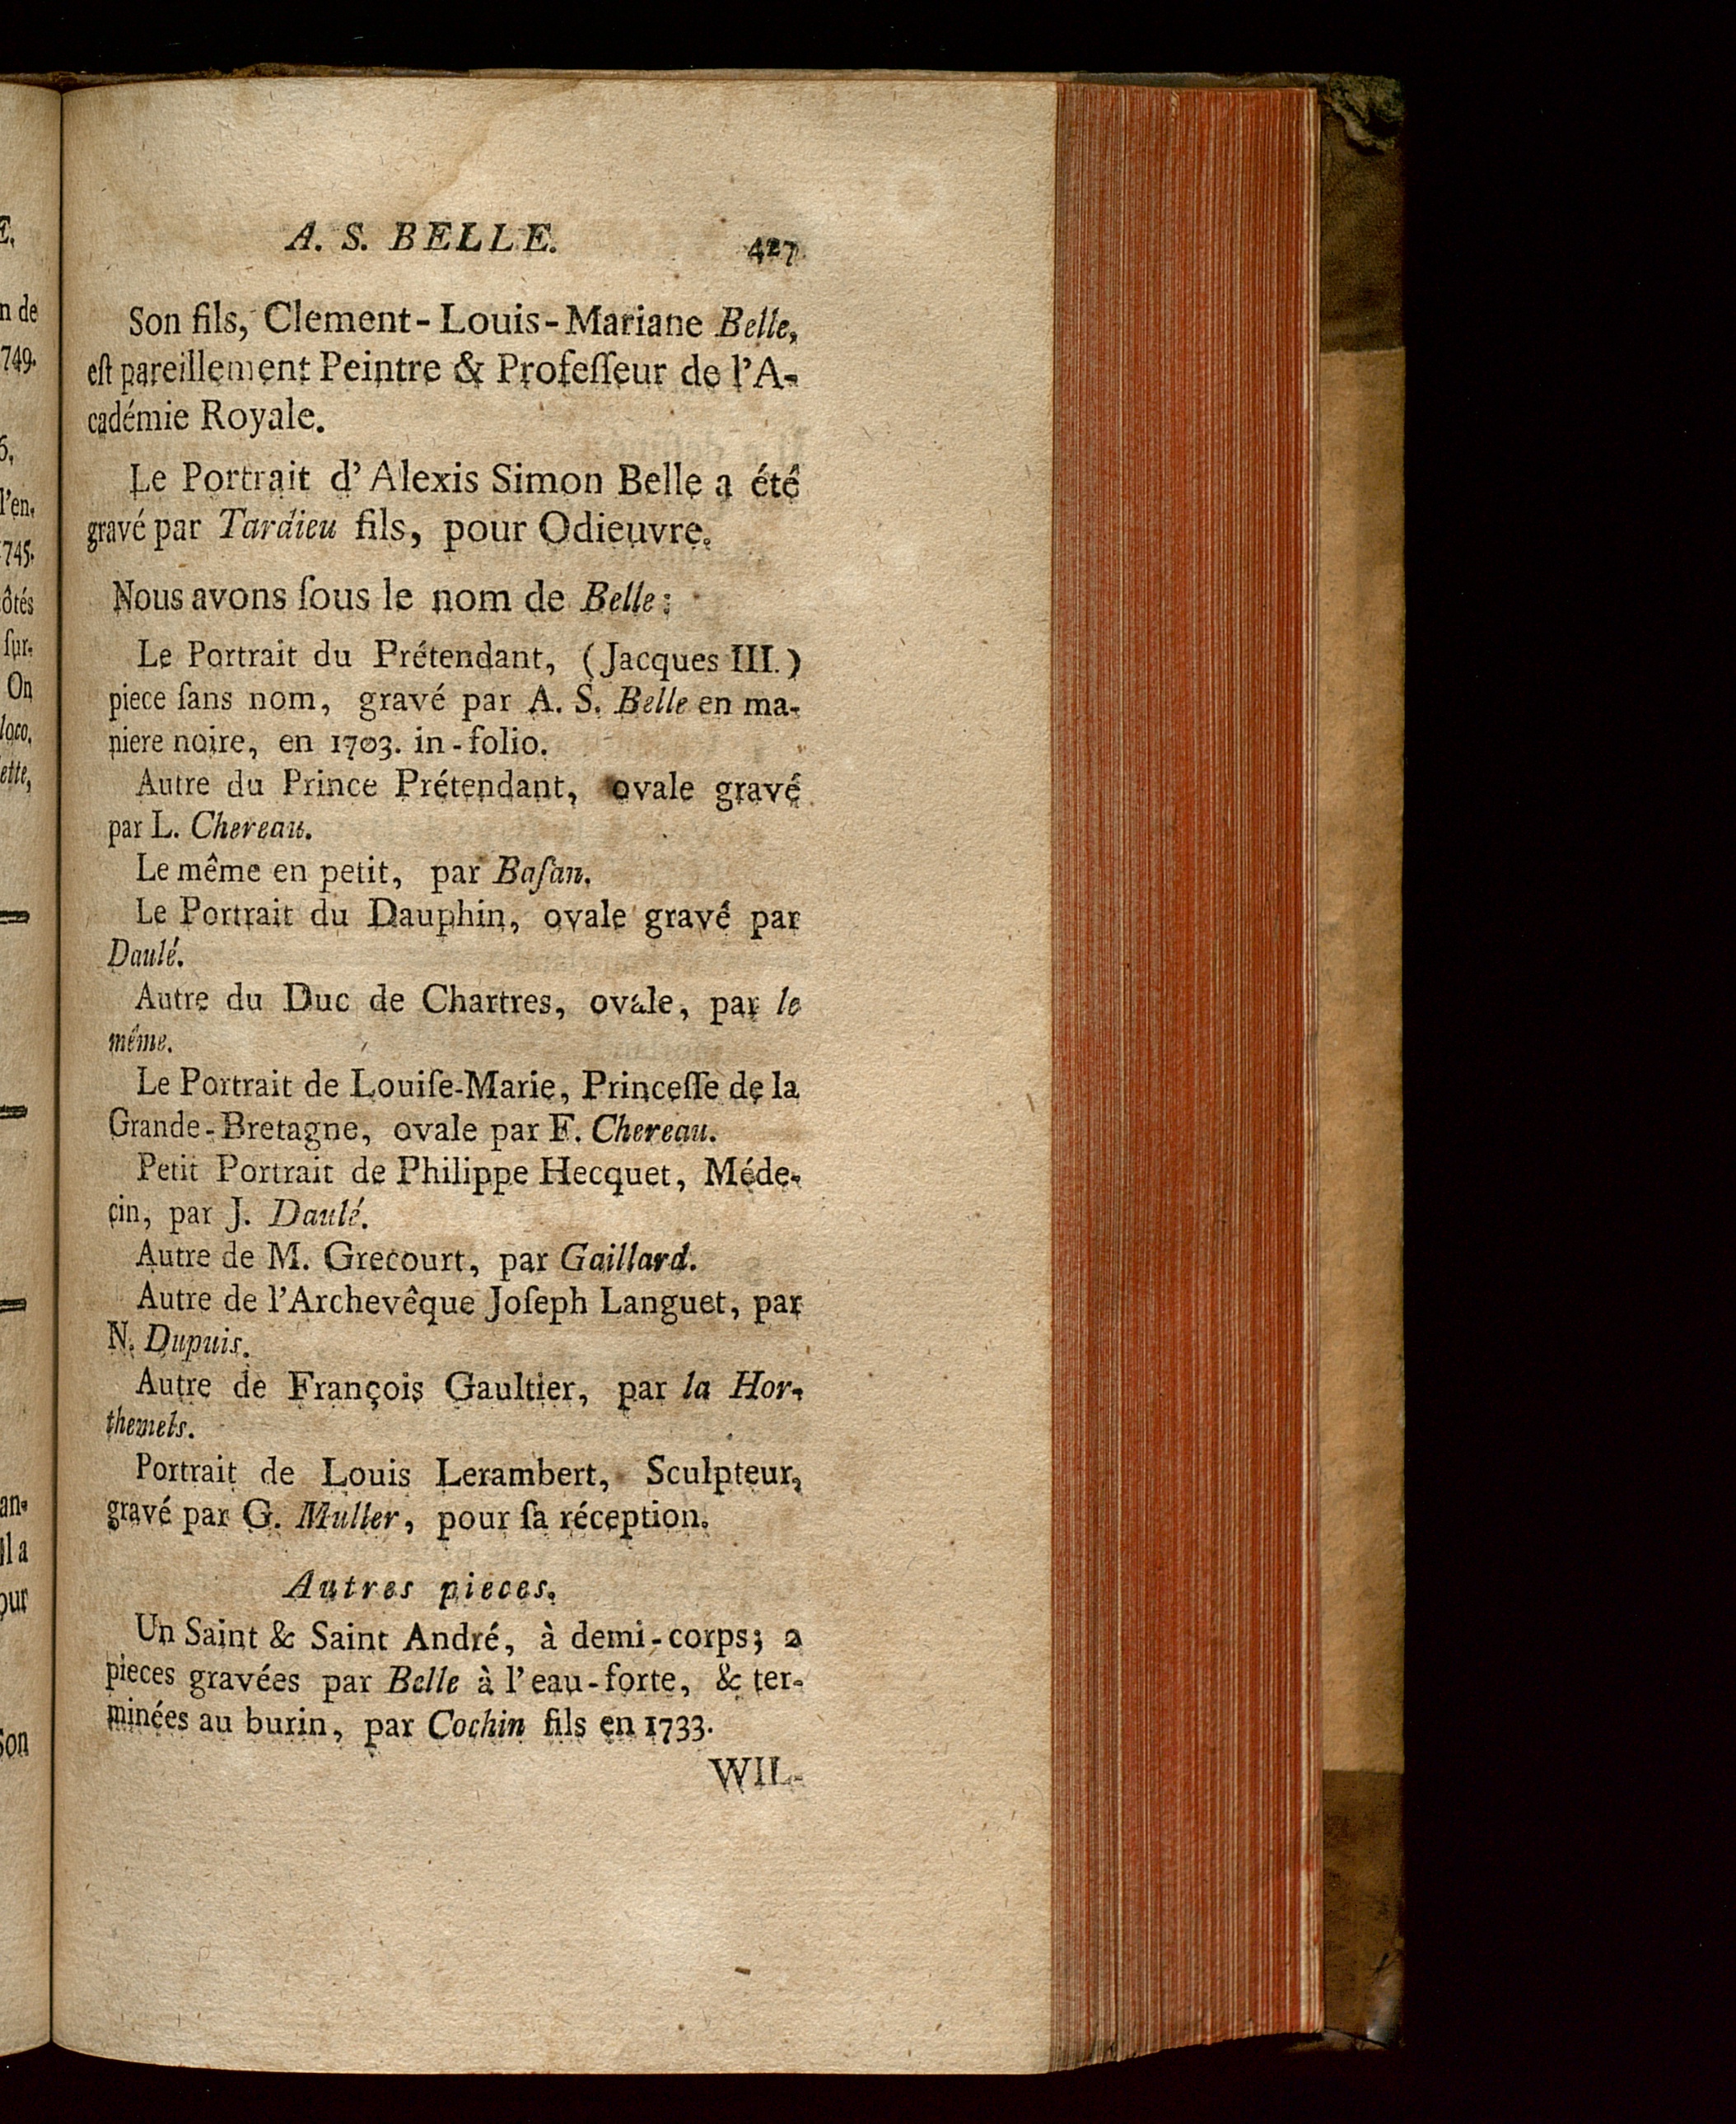 A. S. BELLE. 427
Son fils, Clement-Louis-Mariane Belle,
eſt pareillement Peintre & Profeſſeur de l'A-
cadémie Royale.
Le Portrait d'Alexis Simon Belle a été
gravé par Tardieu fils, pour Odieuvre.
Nous avons ſous le nom de Belle:
Le Portrait du Prétendant, (Jacques III.)
piece ſans nom, gravé par A. S. Belle en ma-
niere noire, en 1703. in-folio.
Autre du Prince Prétendant, ovale gravé
par L. Chereau.
Le même en petit, par Baſan.
Le Portrait du Dauphin, ovale gravé par
Daulé.
Autre du Duc de Chartres, ovale, par le
même.
Le Portrait de Louiſe-Marie, Princeſſe de la
Grande-Bretagne, ovale par F. Chereau.
Petit Portrait de Philippe Hecquet, Méde-
cin, par J. Daulé.
Autre de M. Grecourt, par Gaillard.
Autre de l'Archevêque Joſeph Languet, par
N. Dupuis.
Autre de François Gaultier, par la Hor-
themels.
Portrait de Louis Lerambert, Sculpteur,
gravé par G. Muller, pour ſa réception.
Autres pieces.
Un Saint & Saint André, à demi-corps; 2
pieces gravées par Belle à l'eau-forte, & ter-
minées au burin, par Cochin fils en 1733.
WIL-
E.
n de
749.
6,
l'en-
745.
ôtés
ſur-
On
loco,
ette,
an-
Il a
our
Son